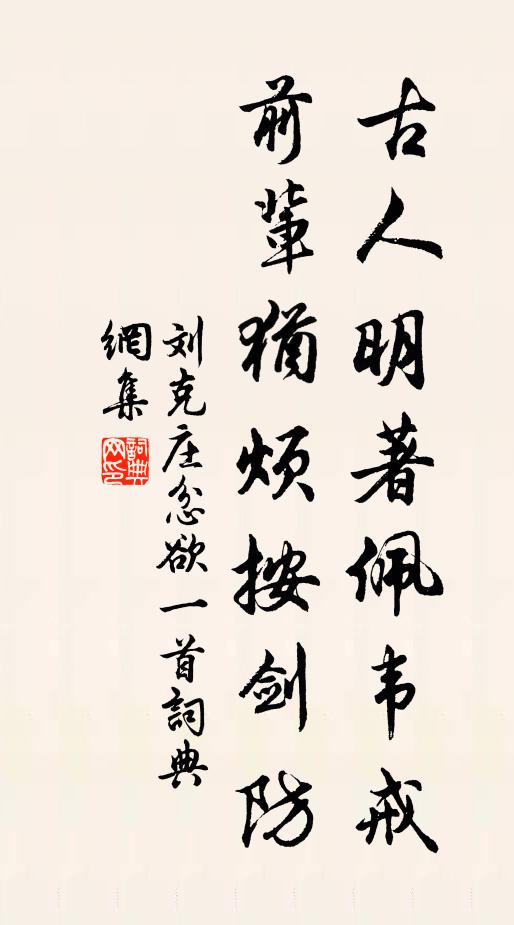 古人明著佩韦戒
前輩猶烦按剑防
刘克庄忿欲一首詞典
網集
詞典
网印